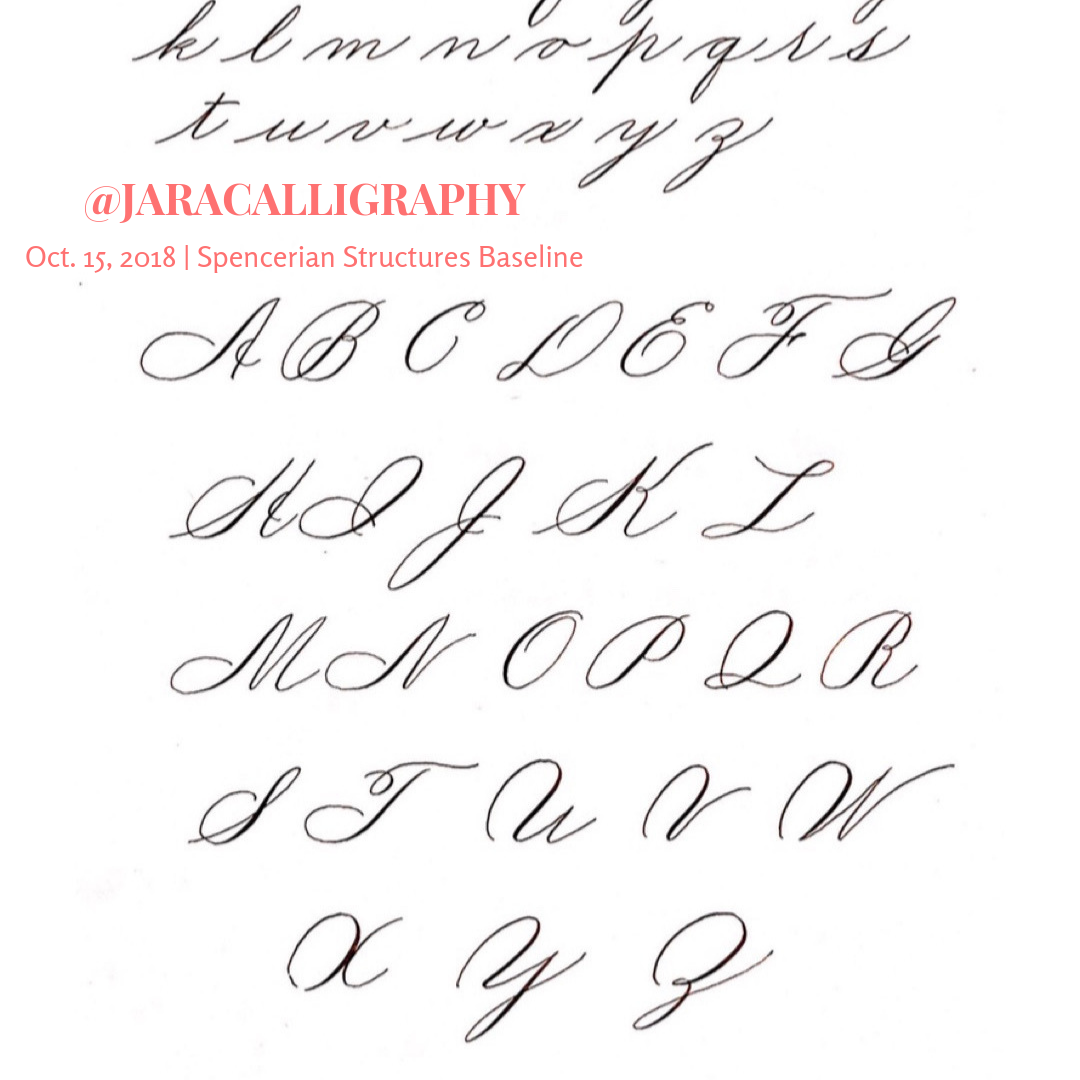 k l m n o p q r s
t u v w x y z
@JARACALLIGRAPHY
Oct. 15, 2018 | Spencerian Structures Baseline
A B C D E F G
H I J K L
M N O P Q R
S T U V W
X Y Z